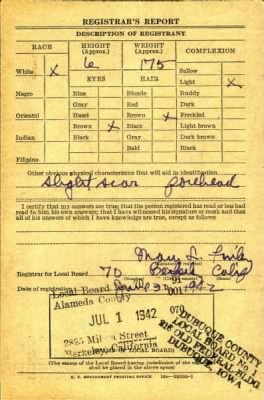 REGISTRAR'S REPORT
DESCRIPTION OF REGISTRANT
RACE HEIGHT (Approx.) WEIGHT (Approx.) COMPLEXION
White X 6 175 Sallow
EYES HAIR Light X
Negro Blue Blonde Ruddy
Gray Red Dark
Oriental Hazel Brown X Freckled
Brown X Black Light brown
Indian Black Gray Dark brown
Bald Black
Filipino
Other obvious physical characteristics that will aid in identification
slight scar forehead
I certify that my answers are true; that the person registered has read or has had
read to him his own answers; that I have witnessed his signature or mark and that
all of his answers of which I have knowledge are true, except as follows:
Mary L.
Registrar for Local Board 70 Berkeley Calif
Date of registration June 30 1942
Local Board
Alameda County 001
JUL 1 1942 079
Street
Berkeley, California
DUBUQUE COUNTY
LOCAL BOARD No. 1
OLD FEDERAL BLDG
DUBUQUE, IOWA
(The stamp of the Local Board having jurisdiction of the registrant
shall be placed in the above space)
U. S. GOVERNMENT PRINTING OFFICE